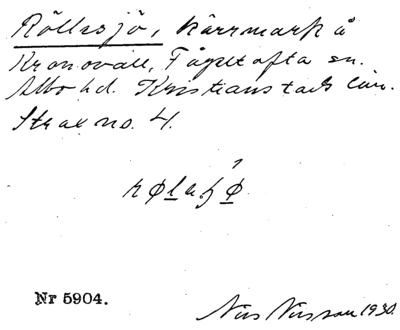 Röllesjö, kärrmark å
Kronovall, Fågeltofta sn.
Albo hd. Kristianstads län.
Strax no. 4.
Nr 5904.
Nils Nilsson 1930.